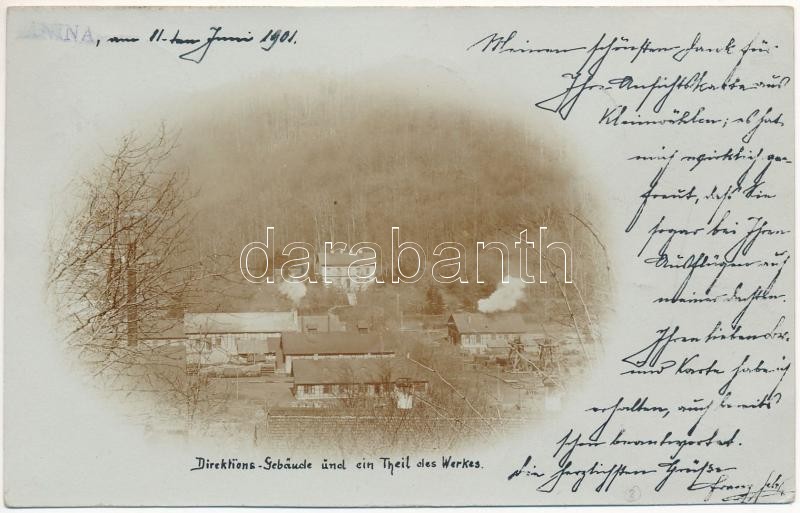 ANINA, am 11-ten Juni 1901.
Meinen schönsten Dank für
Ihre Ansichtskarte aus
; es hat
mich wirklich ge-
freut, daß Sie
sogar bei Ihren
Ausflügen auf
meiner dachten.
Ihren lieben
und Karte habe ich
erhalten, auch bereits
schon beantwortet.
Die herzlichsten Grüße
Franz
darabanth
Direktions-Gebäude und ein Theil des Werkes.